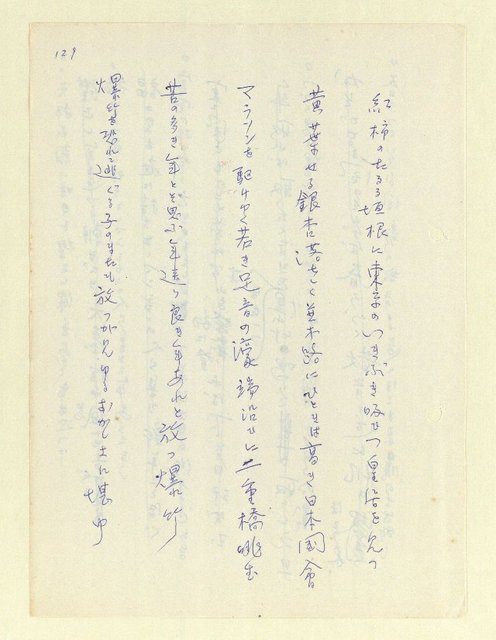 129
紅柿のたるる垣根に東京のいきぶき吸ひつ皇居を見つ
黄葉せる銀杏落ちしく並木路にひときは高き日本國會
マラソンを駆けゆく若き足音の濠端沿ひに二重橋眺む
苦の多き年とぞ思ふ年送り良き年あれと放つ爆竹
爆竹を恐れ逃ぐる子のまたも放つが見ゆるおかしさに堪ゆ